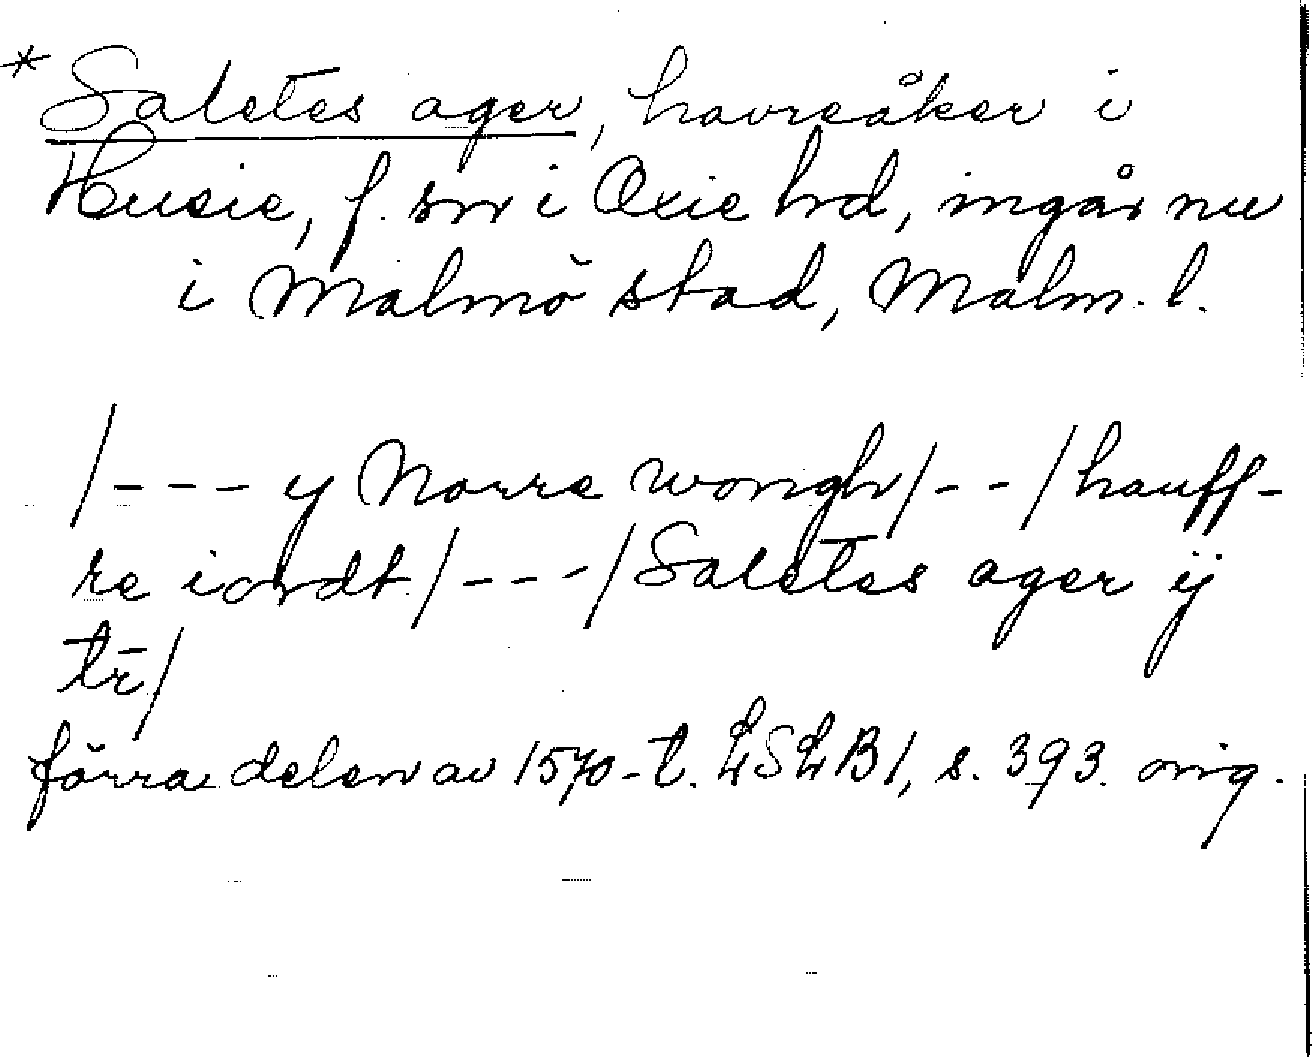 * Saletes ager, havreåker i
Husie, f. sn i Oxie hd, ingår nu
i Malmö stad, Malm. l.
/--- y Norre wongh/--/hauff-
re iordt/---/Saletes ager ij
tr̄/
förra delen av 1570-t. LSLB1, s. 393. orig.